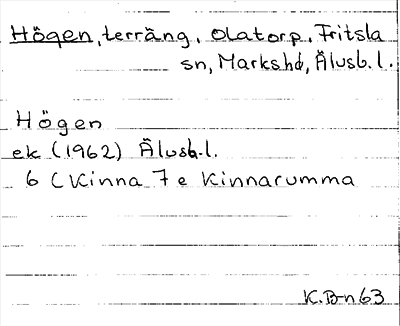 Högen, terräng, Olatorp, Fritsla
sn, Markshd, Älvsb. l.
Högen
ek (1962) Älvsb. l.
6 C Kinna 7 e Kinnarumma
K. B-n 63